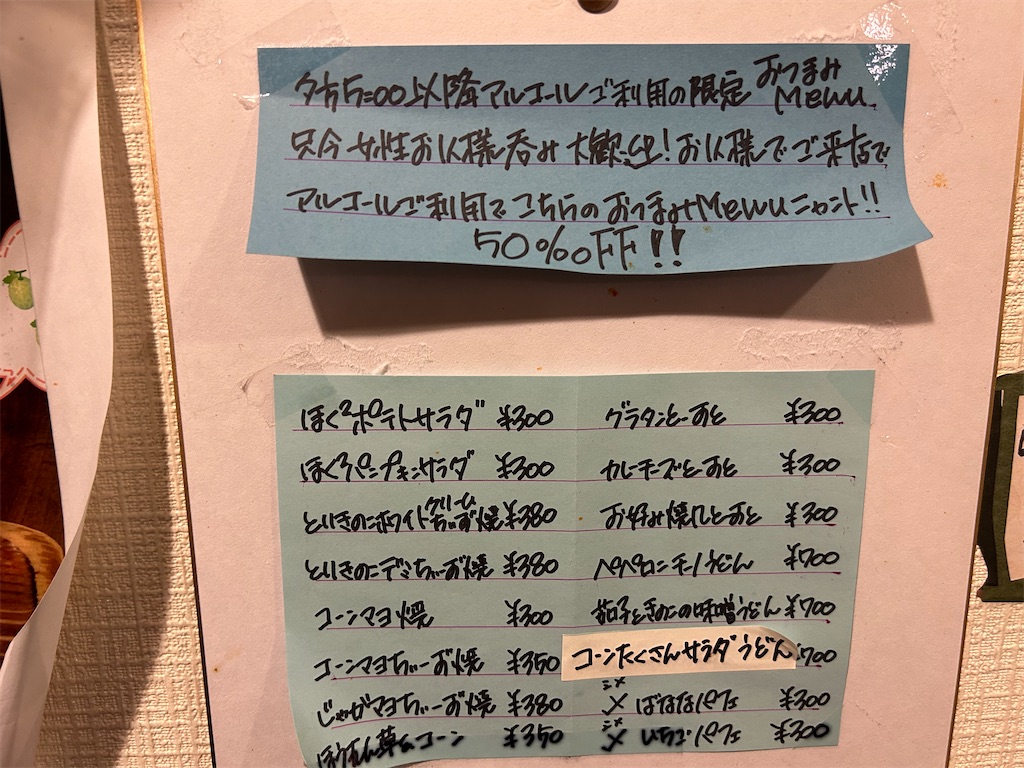 夕方5:00以降アルコールご利用の限定おつまみMenu
只今 女性お1人様呑み 大歓迎!お1人様でご来店で
アルコールご利用でこちらのおつまみMenuニャント!!
50%OFF!!
ほく²ポテトサラダ ¥300
ほく²パンプキンサラダ ¥300
とりきのこホワイトクリームちーず焼 ¥380
とりきのこデミちーず焼 ¥380
コーンマヨ焼 ¥300
コーンマヨちーず焼 ¥350
じゃがマヨちーず焼 ¥380
ほうれん草&コーン ¥350
グラタンとーすと ¥300
カレーチーズとーすと ¥300
お好み焼風とーすと ¥300
ペペロンチーノうどん ¥700
茄子ときのこの味噌うどん ¥700
コーンたくさんサラダうどん ¥700
ミメ ばななパフェ ¥300
ミメ いちごパフェ ¥300